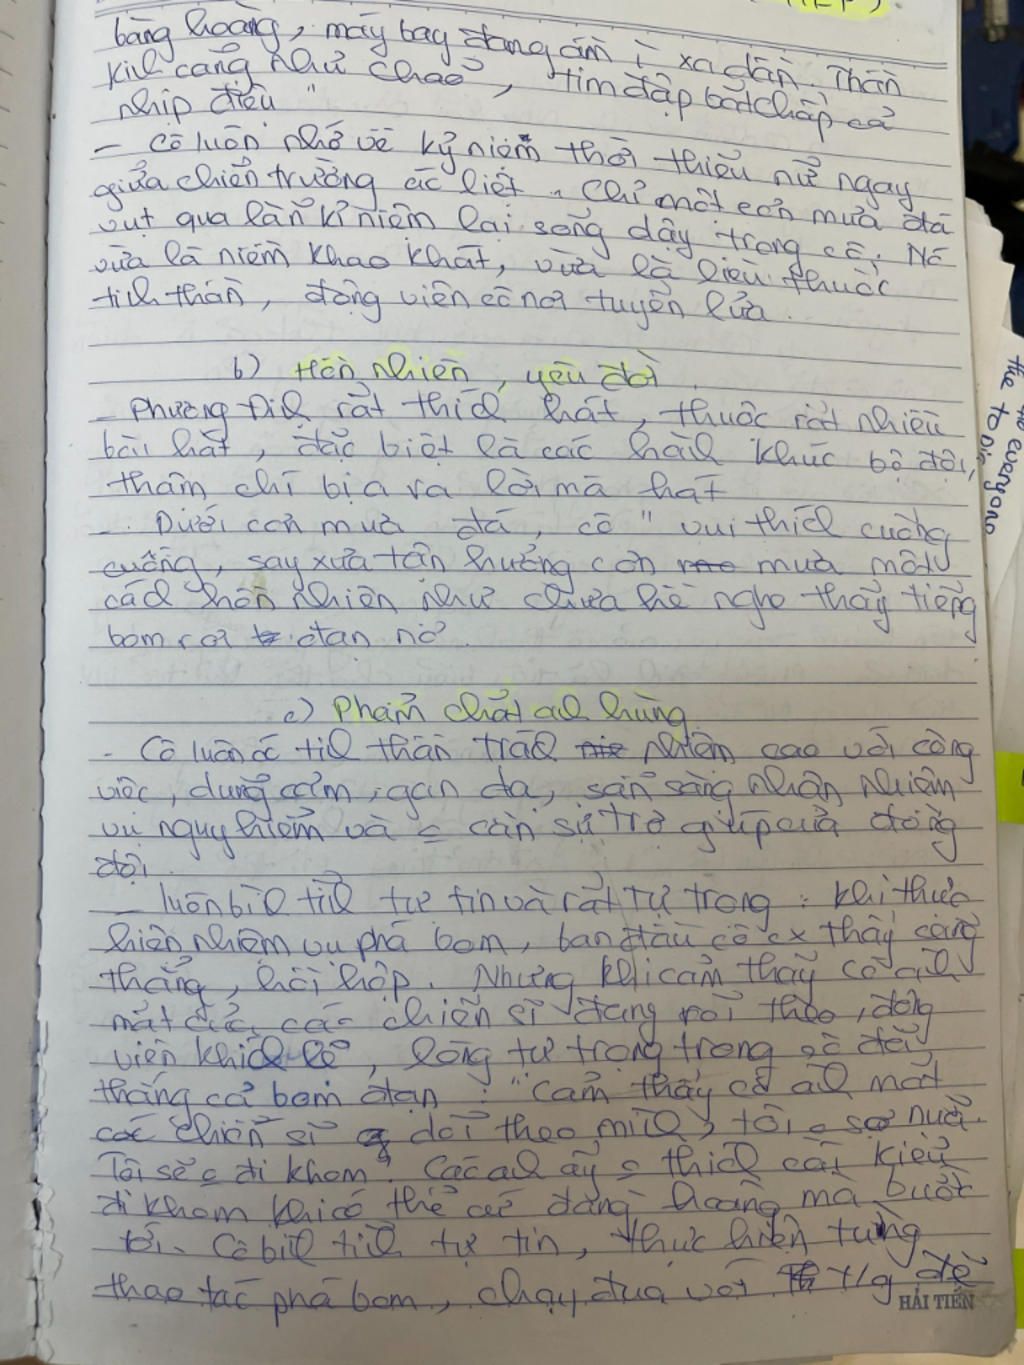 bàng hoàng, máy bay đang ầm ì xa dần. Thần
kinh căng như chão, tim đập bất chấp cả
nhịp điệu"
- Cô luôn nhớ về kỷ niệm thời thiếu nữ ngay
giữa chiến trường ác liệt. Chỉ một cơn mưa đá
vụt qua làn kỉ niệm lại sống dậy trong cô. Nó
vừa là niềm khao khát, vừa là liều thuốc
tinh thần, động viên cô nơi tuyến lửa.
b) Hồn nhiên, yêu đời
- Phương Định rất thích hát, thuộc rất nhiều
bài hát, đặc biệt là các hành khúc bộ đội,
thậm chí bịa ra lời mà hát
- Dưới cơn mưa đá, cô "vui thích cuống
cuồng, say xưa tận hưởng cơn mưa một
cách hồn nhiên như chưa hề nghe thấy tiếng
bom rơi đạn nổ.
c) Phẩm chất anh hùng
- Cô luôn có tinh thần trách nhiệm cao với công
việc, dũng cảm, gan dạ, sẵn sàng nhận nhiệm
vụ nguy hiểm và cần sự trợ giúp của đồng
đội.
- Luôn bình tĩnh tự tin và rất tự trọng: Khi thực
hiện nhiệm vụ phá bom, ban đầu cô cx thấy căng
thẳng, hồi hộp. Nhưng khi cảm thấy có ánh
mắt của các chiến sĩ đang rõi theo, động
viên khích lệ, lòng tự trọng trong cô đã
thắng cả bom đạn: "Cảm thấy có ánh mắt
các chiến sĩ dõi theo mình, tôi sợ nữa.
Tôi sẽ đi khom". Các anh ấy thích cái kiểu
đi khom khi có thể cứ đàng hoàng mà bước
tới. Cô bình tĩnh tự tin, thực hiện từng
thao tác phá bom, chạy đua với t/g để
HẢI TIẾN
the everyone
the topic